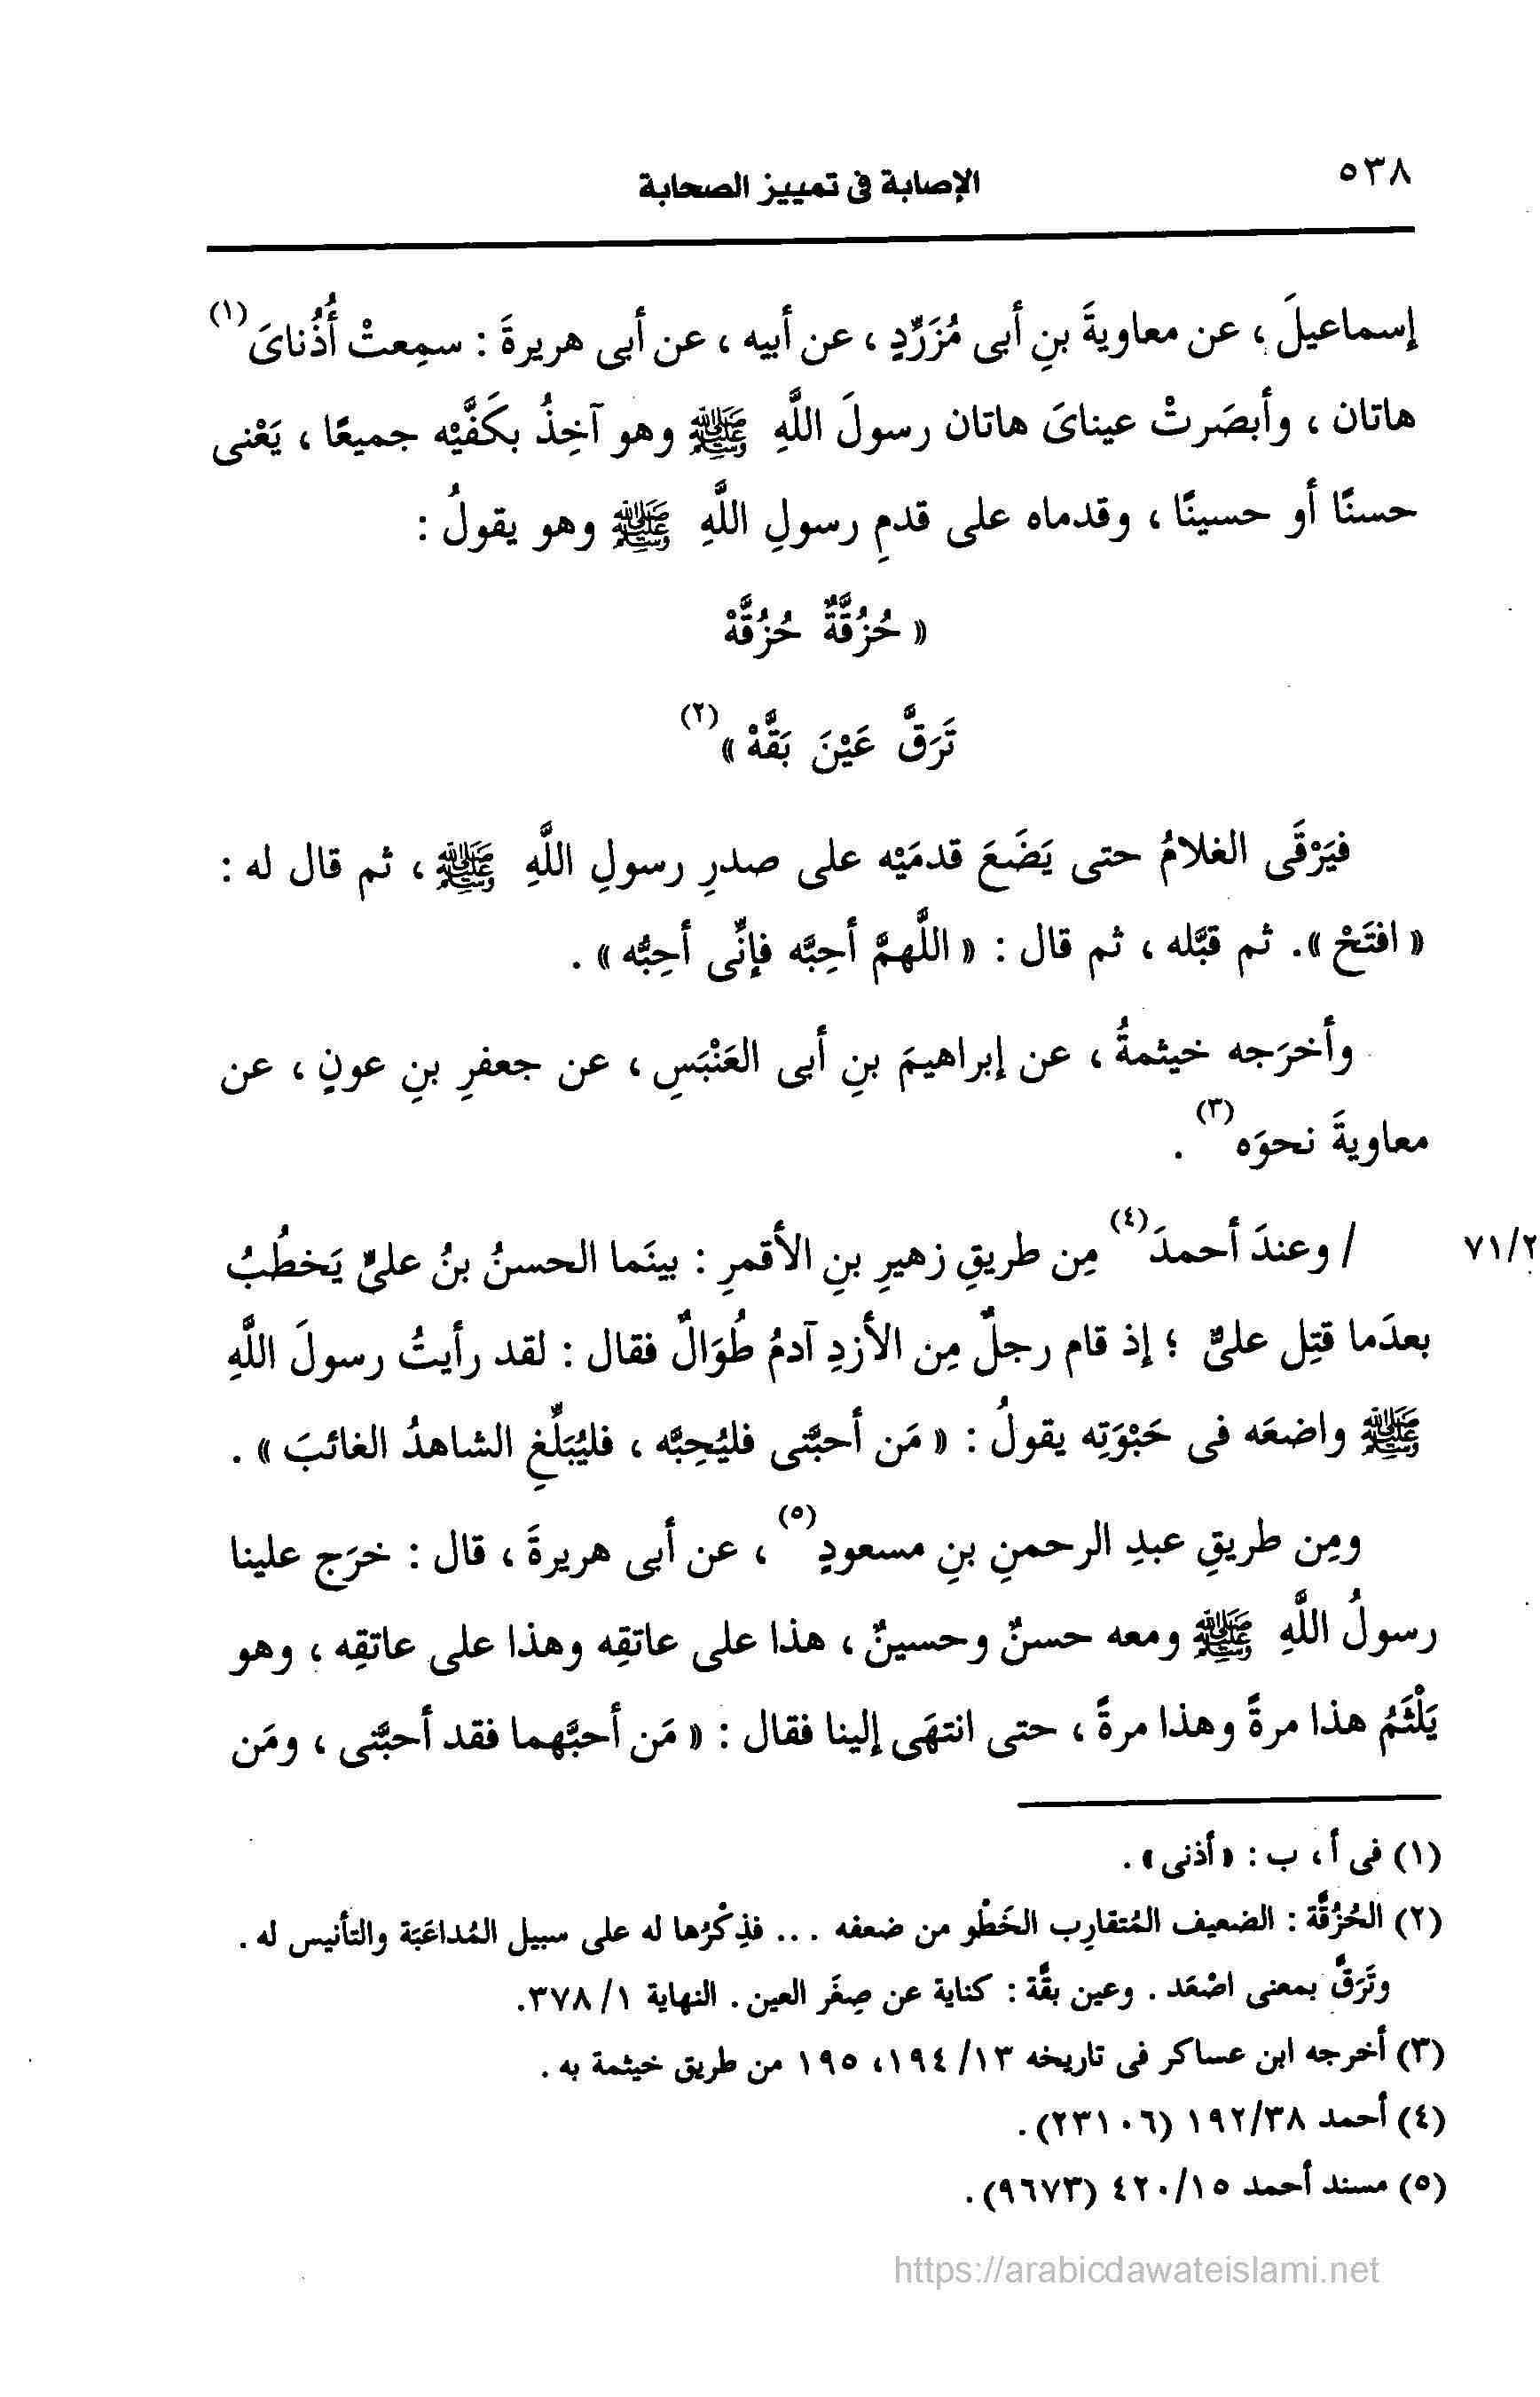 ٥٣٨
الإصابة فى تمييز الصحابة
إسماعيلَ ، عن معاويةَ بنِ أبى مُزَرِّدٍ ، عن أبيه ، عن أبى هريرةَ : سمِعتْ أُذُناىَ(١)
هاتان ، وأبصَرتْ عيناىَ هاتان رسولَ اللَّهِ ﷺ وهو آخِذُ بكَفَّيْه جميعًا ، يَعْنى
حسنًا أو حسينًا ، وقدماه على قدمِ رسولِ اللَّهِ ﷺ وهو يقولُ :
« حُزُقَّةٌ حُزُقَّهْ
تَرَقَّ عَيْنَ بَقَّهْ »(٢)
فيَرْقَى الغلامُ حتى يَضَعَ قدمَيْه على صدرِ رسولِ اللَّهِ ﷺ ، ثم قال له :
« افتَحْ ». ثم قبَّله ، ثم قال : « اللَّهمَّ أحِبَّه فإنِّى أحِبُّه » .
وأخرَجه خيثمةُ ، عن إبراهيمَ بنِ أبى العَنْبَسِ ، عن جعفرِ بنِ عونٍ ، عن
معاويةَ نحوَه(٣) .
٧١/٢ / وعندَ أحمدَ(٤) مِن طريقِ زهيرِ بنِ الأقمرِ : بينَما الحسنُ بنُ علىٍّ يَخطُبُ
بعدَما قتِل علىٌّ ؛ إذ قام رجلٌ مِن الأزدِ آدمُ طُوَالٌ فقال : لقد رأيتُ رسولَ اللَّهِ
ﷺ واضعَه فى حَبْوَتِه يقولُ : « مَن أحبَّنى فليُحِبَّه ، فليُبَلِّغِ الشاهدُ الغائبَ » .
ومِن طريقِ عبدِ الرحمنِ بنِ مسعودٍ(٥) ، عن أبى هريرةَ ، قال : خرَج علينا
رسولُ اللَّهِ ﷺ ومعه حسنٌ وحسينٌ ، هذا على عاتقِه وهذا على عاتقِه ، وهو
يَلْثَمُ هذا مرةً وهذا مرةً ، حتى انتهَى إلينا فقال : « مَن أحبَّهما فقد أحبَّنى ، ومَن
(١) فى أ ، ب : « أذنى » .
(٢) الحُزُقَّة : الضعيف المُتقارِب الخَطْو من ضعفه . . . فذِكْرُها له على سبيل المُداعَبَة والتأنيس له .
وتَرَقَّ بمعنى اصْعَد . وعين بقَّة : كناية عن صِغَر العين . النهاية ١/ ٣٧٨.
(٣) أخرجه ابن عساكر فى تاريخه ١٣/ ١٩٤، ١٩٥ من طريق خيثمة به .
(٤) أحمد ١٩٢/٣٨ (٢٣١٠٦) .
(٥) مسند أحمد ٤٢٠/١٥ (٩٦٧٣) .
https://arabicdawateislami.net